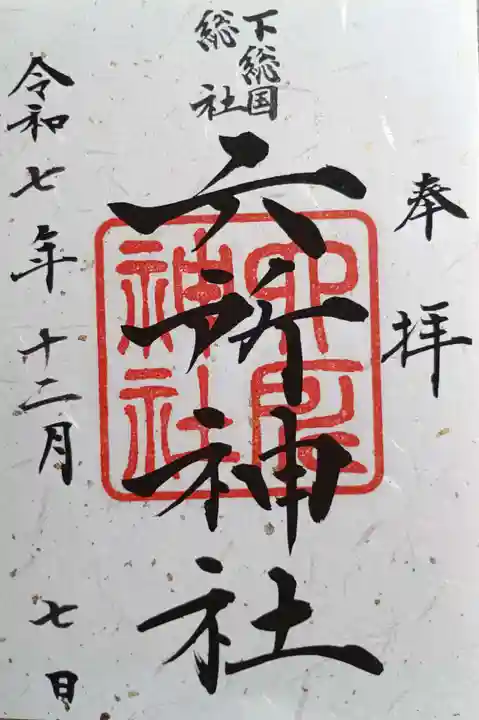 奉拝
下総国
総社
六所神社
六所
神社
令和七年十二月七日